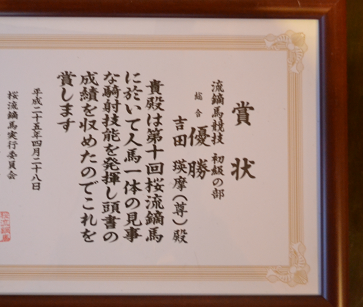 賞状
流鏑馬競技 初級の部
総合 優勝
吉田 瑛摩(尊)殿
貴殿は第十回桜流鏑馬
に於いて人馬一体の見事
な騎射技能を発揮し頭書の
成績を収めたのでこれを
賞します
平成二十五年四月二十八日
桜流鏑馬実行委員会